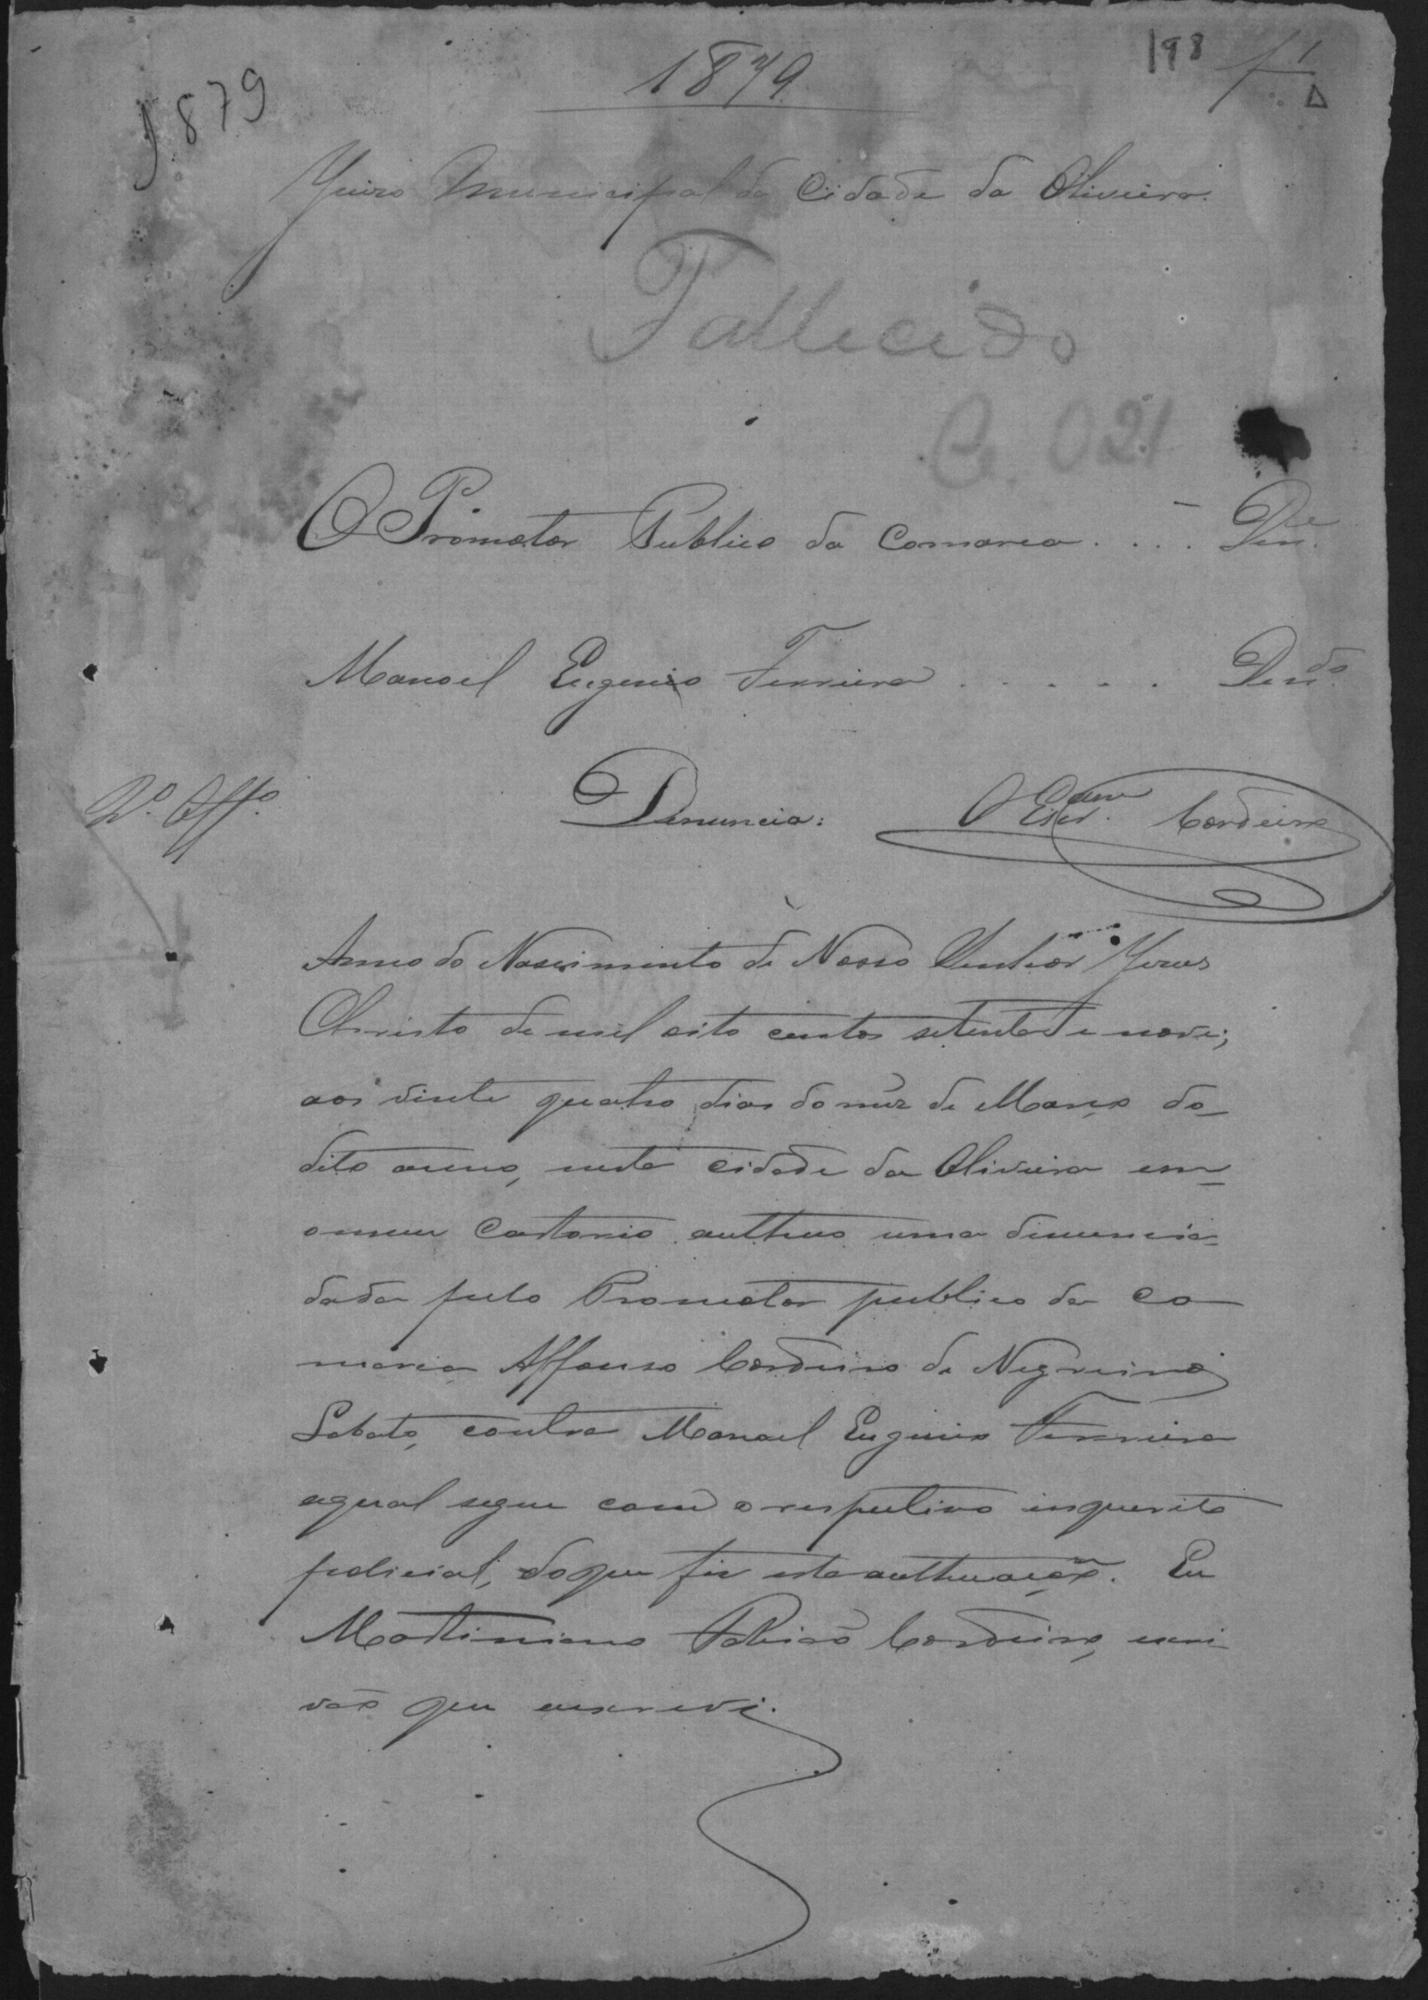 1879
198
1879
Juizo Municipal da Cidade da Oliveira.
Fallecido
C. 021
O Promotor Publico da Comarca . . . . Den.te
Manoel Eugenio Ferreira . . . . . Den.do
2º Offº
Denuncia:
O Escr.am Cordeiro
Anno do Nascimento de Nosso Senhor Jezus
Christo de mil oito centos setenta e nove;
aos vinte quatro dias do mez de Março do
dito anno, nesta cidade da Oliveira em
o meu Cartorio authuo uma denuncia
dada pelo Promotor publico da co
marca Affonso Cordeiro de Negreiros
Lobato, contra Manoel Eugenio Ferreira
a qual segue com o respectivo inquerito
policial, do que fiz esta authuação. Eu
Martiniano Cordeiro, escri
vão que escrevi.